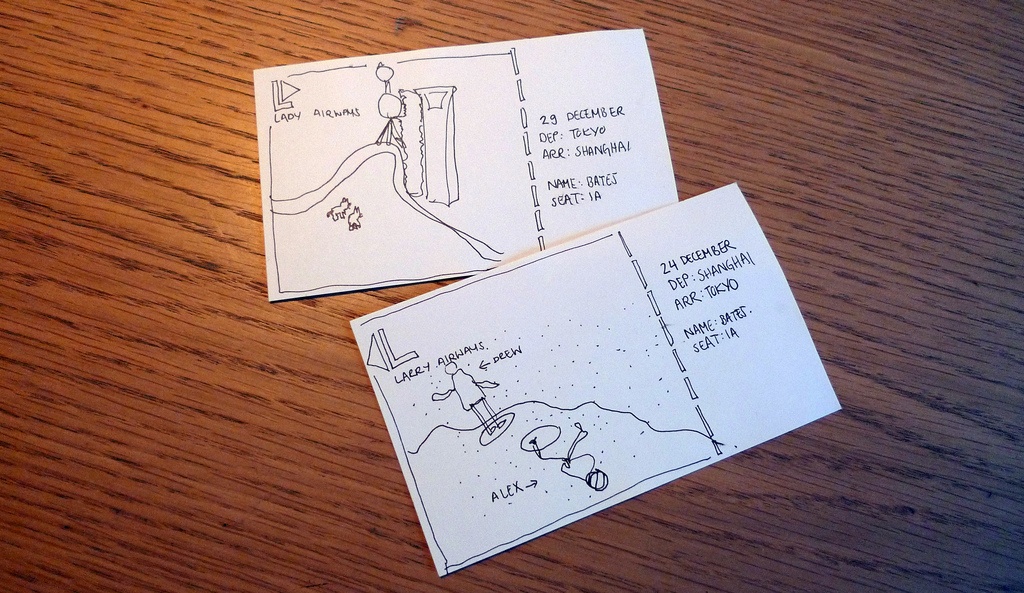 LADY AIRWAYS
29 DECEMBER
DEP: TOKYO
ARR: SHANGHAI
NAME: BATES
SEAT: 1A
LARRY AIRWAYS
← DREW
ALEX →
24 DECEMBER
DEP: SHANGHAI
ARR: TOKYO
NAME: BATES.
SEAT: 1A